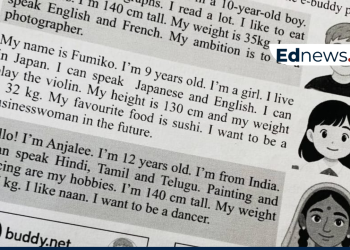 a 10-year-old boy.
I read a lot. I like to eat
speak English and French. My weight is 35kg
photographer. My ambition is to
My name is Fumiko. I'm 9 years old. I'm a girl. I live
in Japan. I can speak Japanese and English. I can
play the violin. My height is 130 cm and my weight
32 kg. My favourite food is sushi. I want to be a
businesswoman in the future.
Hello! I'm Anjalee. I'm 12 years old. I'm from India.
can speak Hindi, Tamil and Telugu. Painting and
are my hobbies. I'm 140 cm tall. My weight
kg. I like naan. I want to be a dancer.
buddy.net
e-buddy
Ednews.